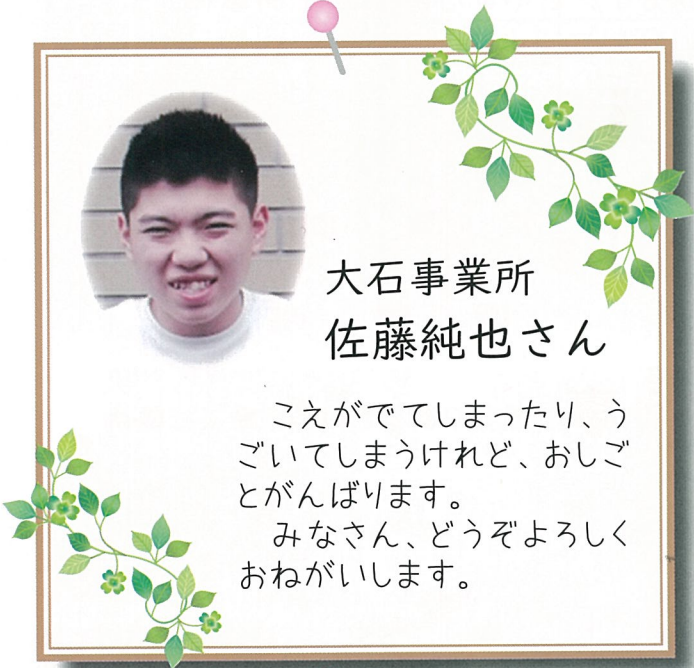 大石事業所
佐藤純也さん
こえがでてしまったり、う
ごいてしまうけれど、おしご
とがんばります。
みなさん、どうぞよろしく
おねがいします。